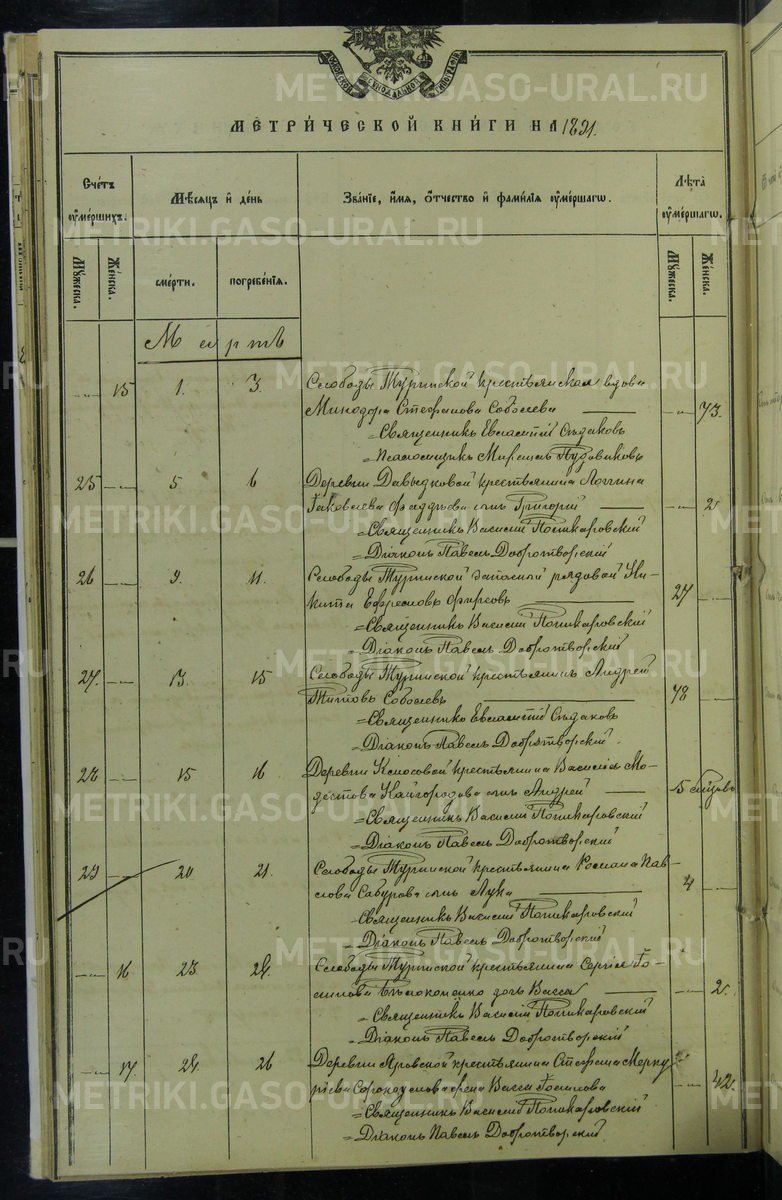 МЕТРИ́ЧЕСКОЙ КНИ́ГИ НА 1891.
Сче́тъ ᲂумершихъ.
Мѣсяцъ и де́нь
Зва́нїе, и́мя, ѻ҆́тчество и фами́лїя ᲂуме́ршагѡ.
Лѣта̀ ᲂуме́ршагѡ.
Мꙋ́жеска.
Же́нска.
сме́рти.
погребе́нїя.
Мꙋ́жеска.
Же́нска.
Мартъ
15 1. 3. Слободы Туринской крестьянская вдова
Минодора Стефанова Соболева 73.
Священникъ Евлампій Сѣдаковъ
Псаломщикъ Пудовиковъ
25 5 6 Деревни Давыдковой крестьянина Логгина
Іаковлева Фаддѣева сынъ Григорій 2
Священникъ Василій Поликаровскій
Діаконъ Павелъ Добротворскій
26 9. 11. Слободы Туринской запасный рядовой Ни-
кита Ефремовъ Фирсовъ 27
Священникъ Василій Поликаровскій
Діаконъ Павелъ Добротворскій
27. 13. 15 Слободы Туринской крестьянинъ Андрей
Титовъ Соболевъ 78
Священникъ Евлампій Сѣдаковъ
Діаконъ Павелъ Добротворскій.
28 15 16 Деревни Колосовой крестьянина Василія Мо-
дестова Кайгородова сынъ Андрей 5
Священникъ Василій Поликаровскій
Діаконъ Павелъ Добротворскій
29 20 21. Слободы Туринской крестьянина Романа Пав-
лова Сабурова сынъ Лука 4
Священникъ Василій Поликаровскій
Діаконъ Павелъ Добротворскій
16 23. 24. Слободы Туринской крестьянина Сергія Іо-
силова дочь Васса 2.
Священникъ Василій Поликаровскій
Діаконъ Павелъ Добротворскій
17. 24. 26 Деревни Яровской крестьянина Стефана Мерку-
ріева жена Васса Іосилова 42.
Священникъ Василій Поликаровскій
Діаконъ Павелъ Добротворскій
METRIKI.GASO-URAL.RU